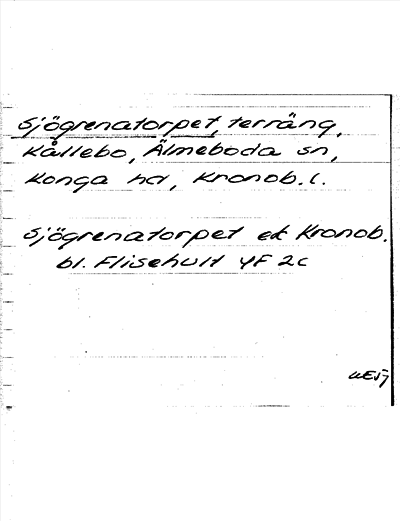 Sjögrenatorpet, terräng,
Kållebo, Älmeboda sn,
Konga hd, Kronob. l.
Sjögrenatorpet ek Kronob.
bl. Flisehult YF 2c